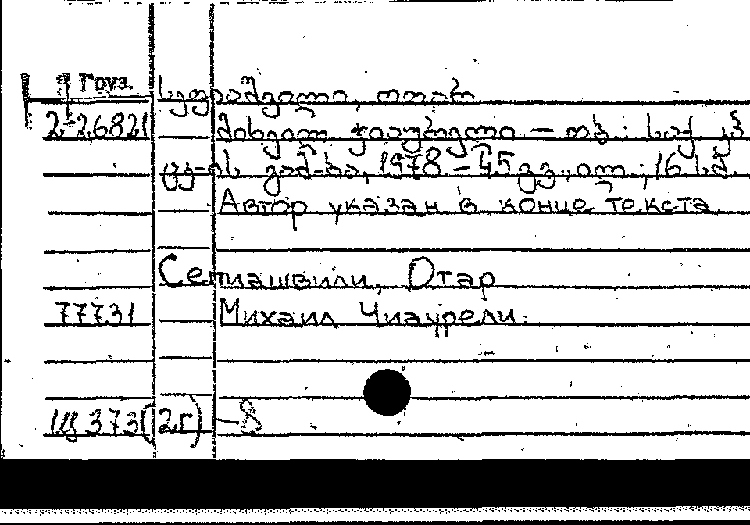 Груз.
სეფიაშვილი, ოთარ
2-26821
მიხეილ ჭიაურელი – თბ. : საქ. კპ
ცკ-ის გამ-ბა, 1978 – 45 გვ., ილ. ; 16 სმ.
Автор указан в конце текста
Сепиашвили, Отар
77731 Михаил Чиаурели.
Щ 373(2Г) – 8